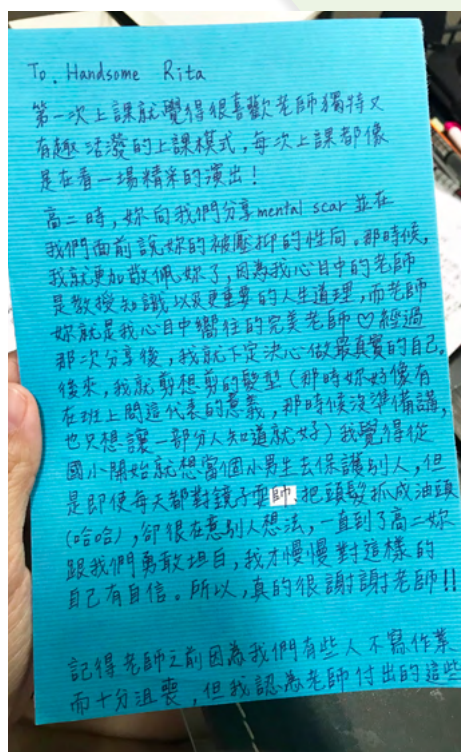 To. Handsome Rita
第一次上課就覺得很喜歡老師獨特又
有趣活潑的上課模式，每次上課都像
是在看一場精采的演出！
高二時，妳向我們分享mental scar 並在
我們面前說妳的被壓抑的性向。那時候，
我就更加敬佩妳了，因為我心目中的老師
是教授知識以及更重要的人生道理，而老師
妳就是我心目中嚮往的完美老師♡經過
那次分享後，我就下定決心做最真實的自己。
後來，我就剪想剪的髮型（那時妳好像有
在班上問這代表的意義，那時候沒準備講，
也只想讓一部分人知道就好）我覺得從
國小開始就想當個小男生去保護別人，但
是即使每天都對鏡子耍帥、把頭髮抓成油頭
（哈哈），卻很在意別人想法，一直到了高二妳
跟我們勇敢坦白，我才慢慢對這樣的
自己有自信。所以，真的很謝謝老師!!
記得老師之前因為我們有些人不寫作業
而十分沮喪，但我認為老師付出的這些